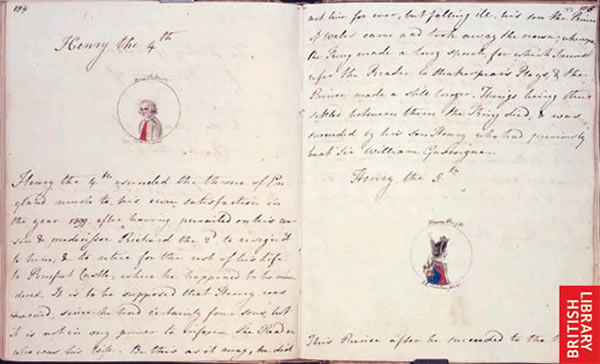 Henry the 4th
Henry the 4th ascended the throne of En-
gland much to his own satisfaction in
the year 1399, after having prevailed on his cou-
sin & predecessor Richard the 2d, to resign it
to him, & to retire for the rest of his life
to Pomfret Castle, where he happened to be mur-
dered. It is to be supposed that Henry was
married, since he had certainly four sons, but
it is not in my power to inform the Reader
who was his wife. Be this as it may, he did
not live for ever, but falling ill, his son the Prince
of Wales came and took away the crown; whereupon
the King made a long speech, for which I must
refer the Reader to Shakespear's Plays, & the
Prince made a still longer. Things being thus
settled between them the King died, & was
succeeded by his Son Henry who had previously
beat Sir William Gascoigne.
Henry the 5th
Henry the 5th
This Prince after he succeeded to the
BRITISH
LIBRARY